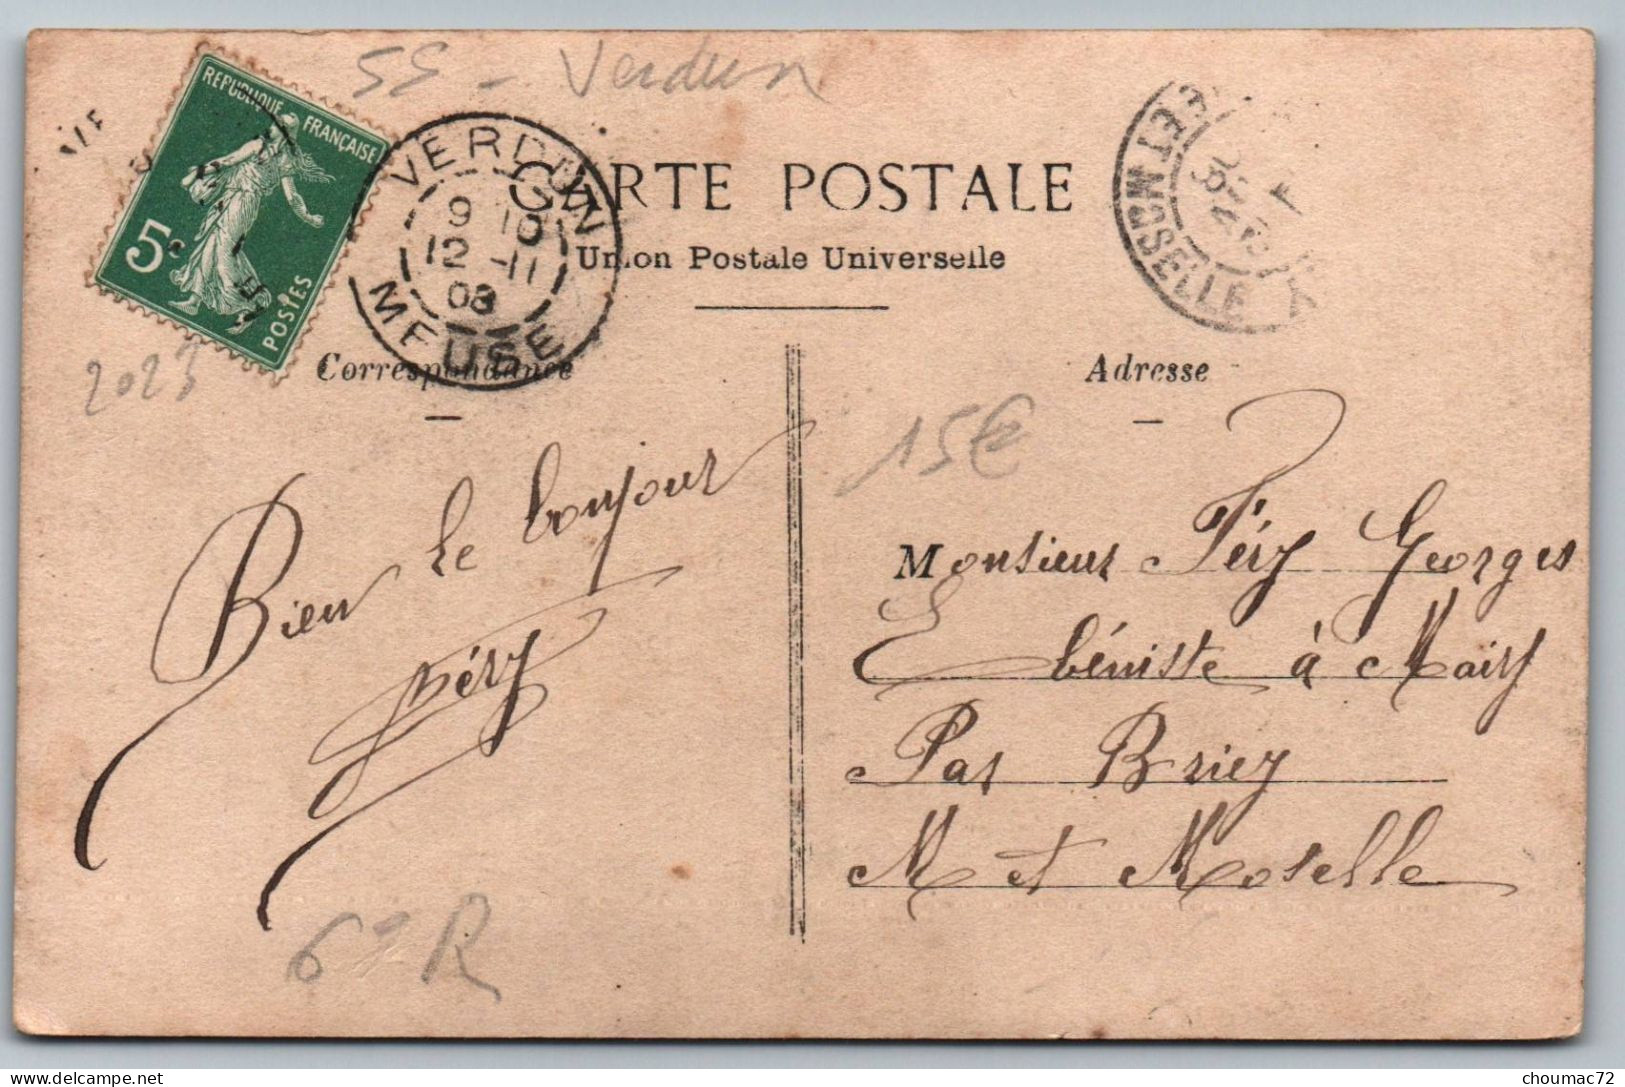 55 - Verdun
REPUBLIQUE FRANÇAISE
5c
POSTES
VERDUN
9 10
12 -11
08
MEUSE
CARTE POSTALE
Union Postale Universelle
ET MOSELLE
2023
Correspondance
Adresse
15€
Bien le bonjour
Péry
Monsieur Péry Georges
Ebéniste à Mairy
Par Briey
M et Moselle
6e R
choumac72